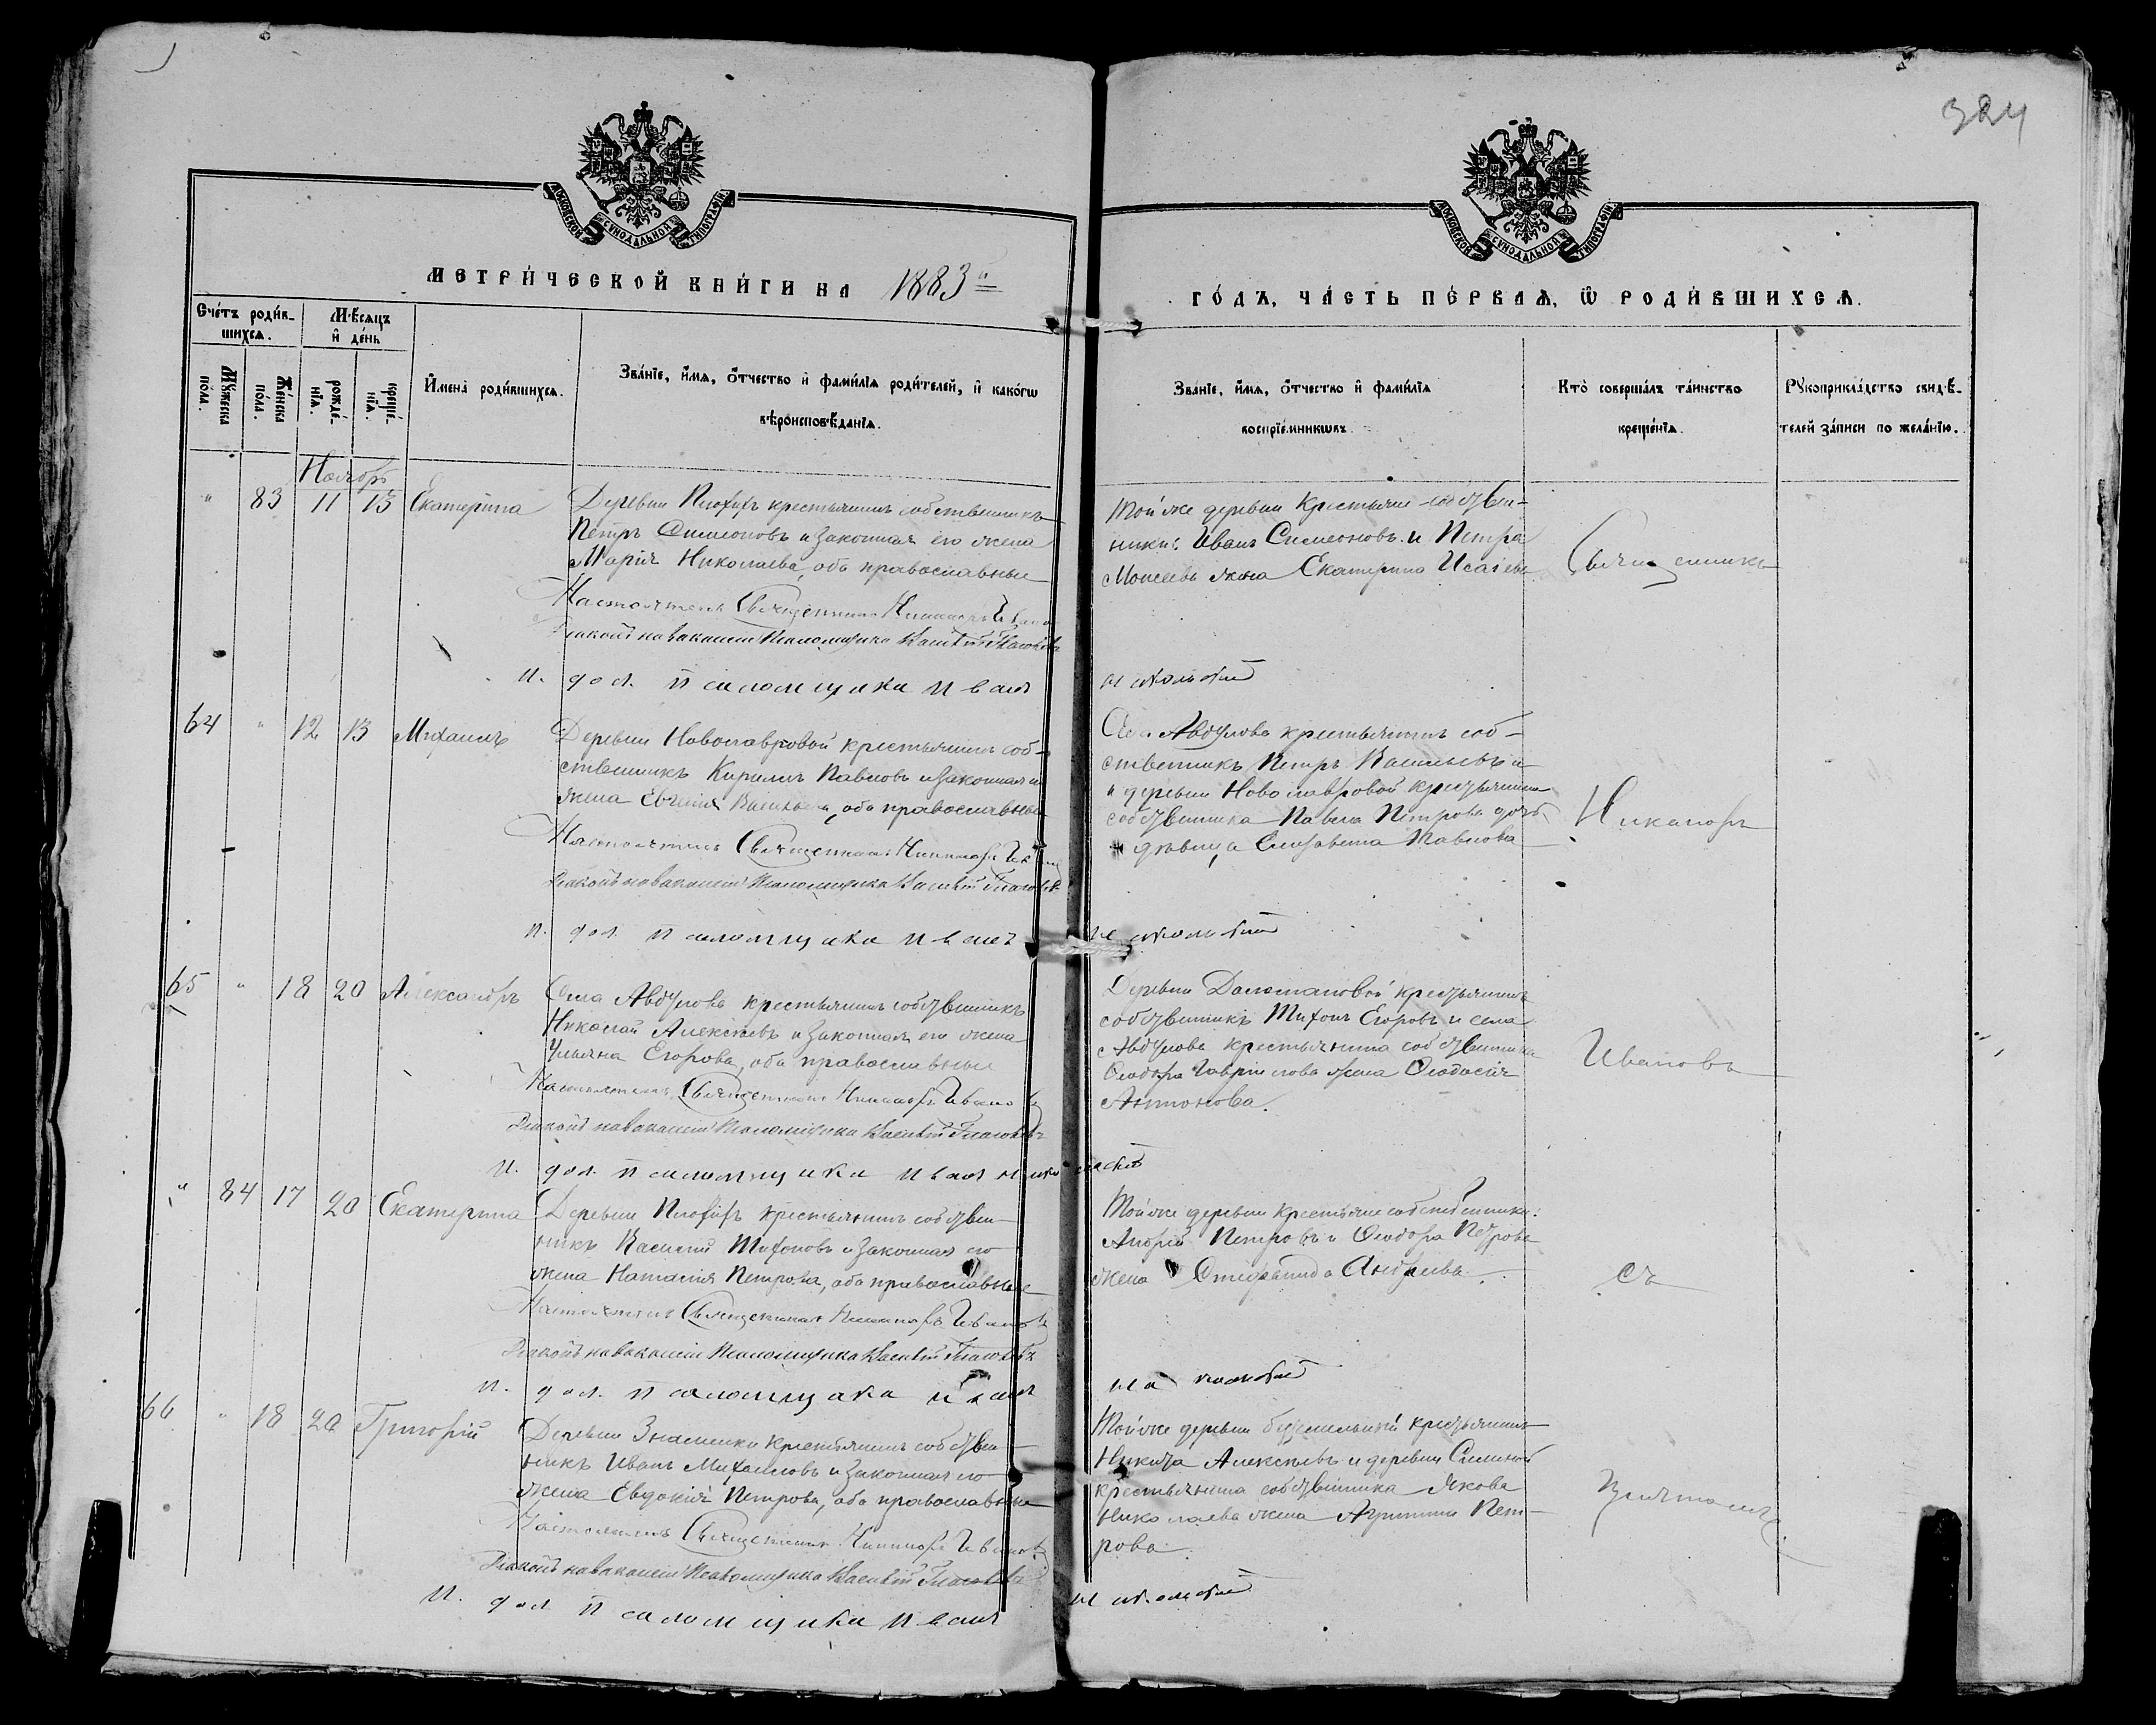 324
МОСКОВСКОЙ СѴНОДАЛЬНОЙ ТИПОГРАФІИ
МОСКОВСКОЙ СѴНОДАЛЬНОЙ ТИПОГРАФІИ
МЕТРИ́ЧЕСКОЙ КНИ́ГИ НА 1883й
ГО́ДЪ, ЧА́СТЬ ПЕ́РВАѦ, Ѡ҆ РОДИ́ВШИХСѦ.
Сче́тъ роди́в-
шихсѧ.
Мѣ́сяцъ
и҆ де́нь
Му́жеска
по́ла.
Же́нска
по́ла.
рожде́-
нїѧ.
креще́-
нїѧ.
И҆мена̀ роди́вшихсѧ.
Зва́нїе, и҆́мѧ, ѻ҆́тчество и҆ фами́лїѧ роди́телей, и҆ како́гѡ
вѣроисповѣ́данїѧ.
Зва́нїе, и҆́мѧ, ѻ҆́тчество и҆ фами́лїѧ
воспрїе́мникѡвъ.
Кто̀ соверша́лъ та́инство
креще́нїѧ.
Рꙋкоприкла́дство свидѣ́-
телей за́писи по жела́нїю.
Ноябрь
" 83 11 13 Екатерина
Деревни крестьянинъ собственникъ
Петръ Симеоновъ и законная его жена
Марія Николаева, оба православные
Настоятель Священникъ Никаноръ Ивановъ
Діаконъ на вакансіи Псаломщика
и. дол. псаломщика Иванъ Никольскій
Той же деревни Крестьяне собствен-
ники: Иванъ Симеоновъ и Петра
Моисеева жена Екатерина Исаіева
Священникъ
64 " 12 13 Михаилъ
Деревни крестьянинъ соб-
ственникъ Кириллъ Павловъ и законная его
жена Евгенія Васильева, оба православные
Настоятель Священникъ Никаноръ Ивановъ
Діаконъ на вакансіи Псаломщика
и. дол. псаломщика Иванъ Никольскій
Села Авдулова крестьянинъ соб-
ственникъ Петръ Васильевъ и
деревни крестьянина
собственника Павла Петрова дочь
дѣвица Елизавета Павлова
Никаноръ
65 " 18 20 Александръ
Села Авдулова крестьянинъ собственникъ
Николай Алексѣевъ и законная его жена
Ульяна Егорова, оба православные
Настоятель Священникъ Никаноръ Ивановъ
Діаконъ на вакансіи Псаломщика
и. дол. псаломщика Иванъ Никольскій
Деревни крестьянинъ
собственникъ Тихонъ Егоровъ и села
Авдулова крестьянина собственника
Ѳеодора Гавріилова жена Ѳеодосія
Антонова.
Ивановъ
" 84 17 20 Екатерина
Деревни крестьянинъ собствен-
никъ Василій Тихоновъ и законная его
жена Наталія Петрова, оба православные
Настоятель Священникъ Никаноръ Ивановъ
Діаконъ на вакансіи Псаломщика
и. дол. псаломщика Иванъ Никольскій
Той же деревни крестьяне собственники:
Андрей Петровъ и Ѳеодора Петрова
жена Андреева.
съ
66 " 18 20 Григорій
Деревни Знаменки крестьянинъ собствен-
никъ Иванъ Михаиловъ и законная его
жена Евдокія Петрова, оба православные
Настоятель Священникъ Никаноръ Ивановъ
Діаконъ на вакансіи Псаломщика
и. дол. псаломщика Иванъ Никольскій
Той же деревни безземельный крестьянинъ
Никита Алексѣевъ и деревни
крестьянина собственника Якова
Николаева жена Агрипина Пет-
рова.